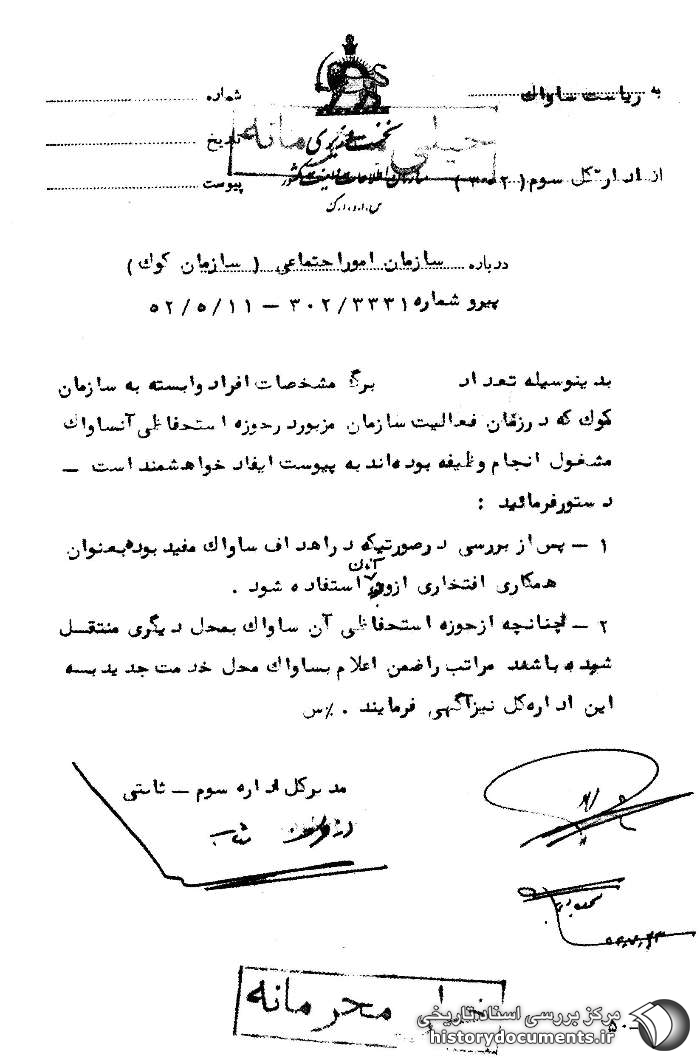 به ریاست ساواک
از اداره کل سوم ( ۳۰۲ )
نخست وزیری
سازمان اطلاعات و امنیت کشور
س.ا.و.ا.ک
شماره
تاریخ
پیوست
خیلی محرمانه
درباره سازمان امور اجتماعی ( سازمان کوک )
پیرو شماره ۳۰۲/۳۳۳۱ – ۵۲/۵/۱۱
بدینوسیله تعداد برگ مشخصات افراد وابسته به سازمان
کوک که در زمان فعالیت سازمان مزبور در حوزه استحفاظی آنساواک
مشغول انجام وظیفه بوده‌اند به پیوست ایفاد خواهشمند است –
دستور فرمائید :
۱ – پس از بررسی در صورتیکه در اهداف ساواک مفید بوده بعنوان
همکاری افتخاری از وجود آنان استفاده شود .
۲ – چنانچه از حوزه استحفاظی آن ساواک بمحل دیگری منتقل
شده باشند مراتب را ضمن اعلام بساواک محل خدمت جدید به
این اداره کل نیز آگهی فرمایند . /س
مدیر کل اداره سوم – ثابتی
خیلی محرمانه
مرکز بررسی اسناد تاریخی
historydocuments.ir